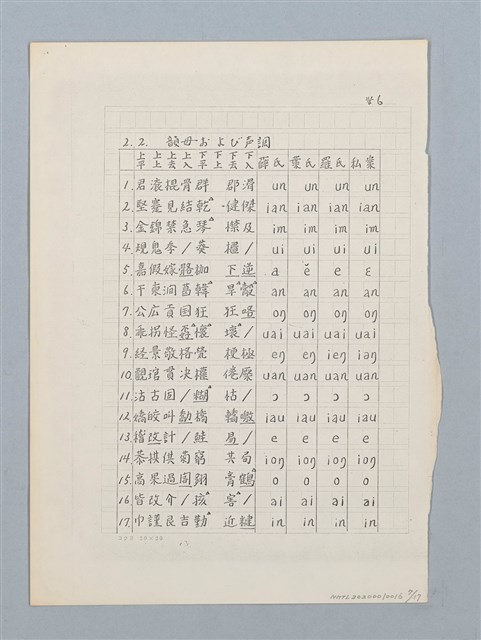 2.2. 韻母および声調
上平 上上 上去 上入 下平 下上 下去 下入 薛氏 葉氏 羅氏 私案
1. 君滾棍骨群 郡滑 un un un un
2. 堅蹇見結乾 健傑 ian ian ian ian
3. 金錦禁急琴 及 im im im im
4. 規鬼季/葵 / ui ui ui ui
5. 嘉假嫁骼枷 下逆 a ě e ɛ
6. 干東澗葛 旱 an an an an
7. 公広貢国狂 狂咯 oŋ oŋ oŋ oŋ
8. 乖拐怪 懷 壞/ uai uai uai uai
9. 経景敬格 梗極 eŋ eŋ ieŋ iəŋ
10. 觀琯貫决權 倦 uan uan uan uan
11. 沽古固/糊 / ɔ ɔ ɔ ɔ
12. 嬌皎叫 橋 轎噭 iau iau iau iau
13. 稽改計/鮭 易/ e e e e
14. 恭拱供菊窮 共局 ioŋ ioŋ ioŋ ioŋ
15. 高果過閣翗 膏鶴 o o o o
16. 皆改介/孩 害/ ai ai ai ai
17. 巾謹艮吉勤 近 in in in in
20×20
NMTL202006/0016 7/19